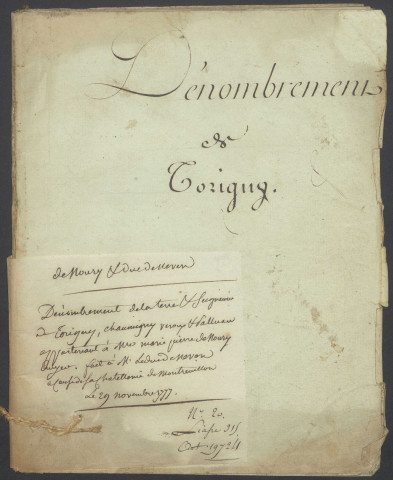 Dénombrement
de
Torigny.
de Moury & duc de Nevers
Dénombrement de la terre & Seigneurie
de Torigny, chaumigny
appartenant à Mre marie pierre de Moury
Ecuyer. fait à Mr. Le duc de Nevers
à cause de sa Chatellenie de Montreuillon
Le 29 novembre 1777.
No. 20.
Liasse 315
Cot. 1972